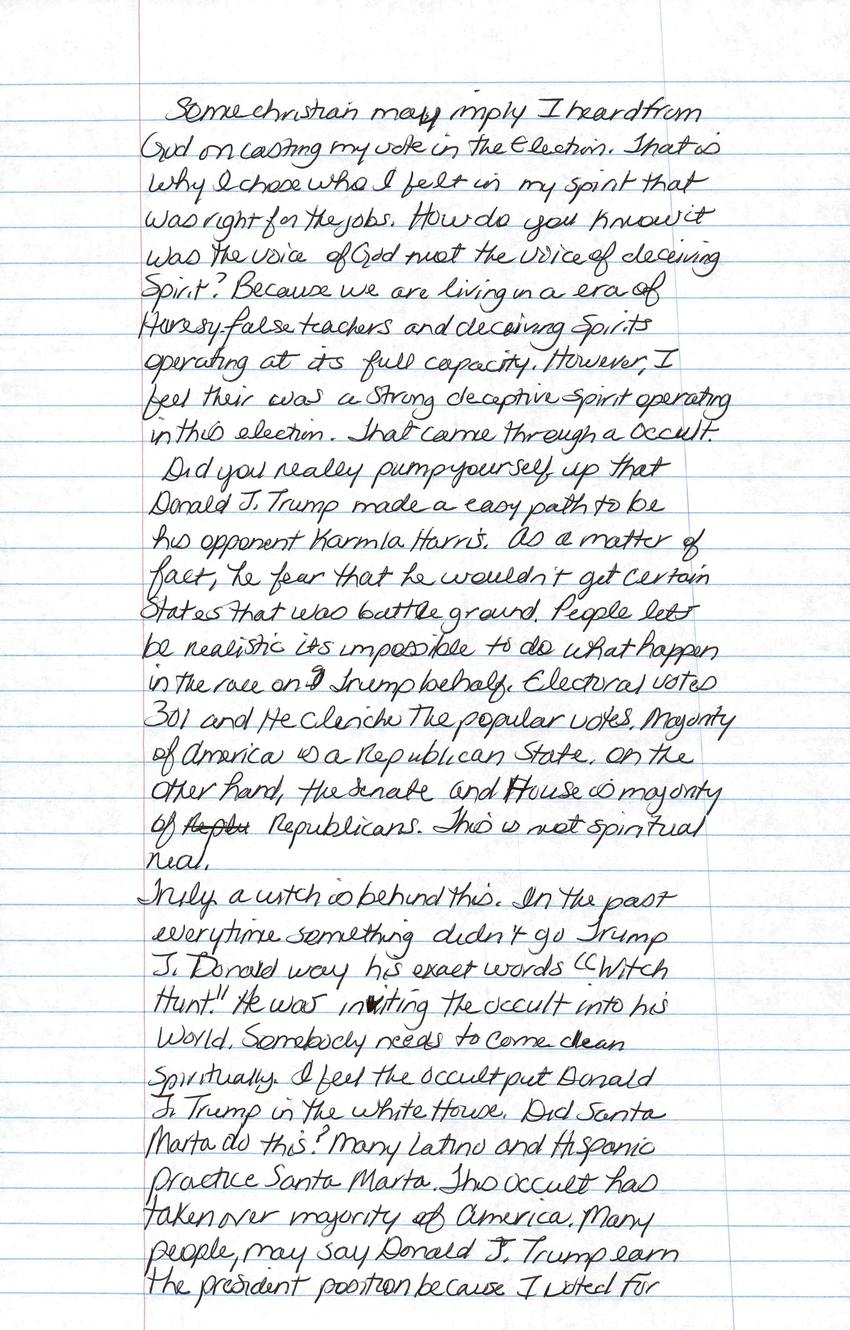 Some christian may imply I heard from
God on casting my vote in the Election. That is
why I chose who I felt in my spirit that
was right for the jobs. How do you know it
was the voice of God nuot the voice of deceiving
Spirit? Because we are living in a era of
Heresy-false teachers and deceiving Spirits
operating at its full capacity. However, I
feel their was a strong deceptive spirit operating
in this election. That came through a Occult.
Did you really pump yourself up that
Donald J. Trump made a easy path to be
his opponent Karmla Harris. As a matter of
fact, he fear that he wouldn't get certain
States that was battle ground. People lets
be realistic its impossible to do what happen
in the race on Trump behalf. Electoral votes
301 and He clenche The popular votes. Majority
of America is a Republican State. On the
other hand, the Senate and House is majority
of Republicans. This is not spiritual
real.
Truly a witch is behind this. In the past
everytime something didn't go Trump
J. Donald way his exact words "Witch
Hunt." He was inviting the occult into his
World. Somebody needs to come clean
Spiritually. I feel the occult put Donald
J. Trump in the white House. Did Santa
Marta do this? Many Latino and Hispanic
practice Santa Marta. This occult has
taken over majority of America. Many
people, may say Donald J. Trump earn
the president position because I voted For